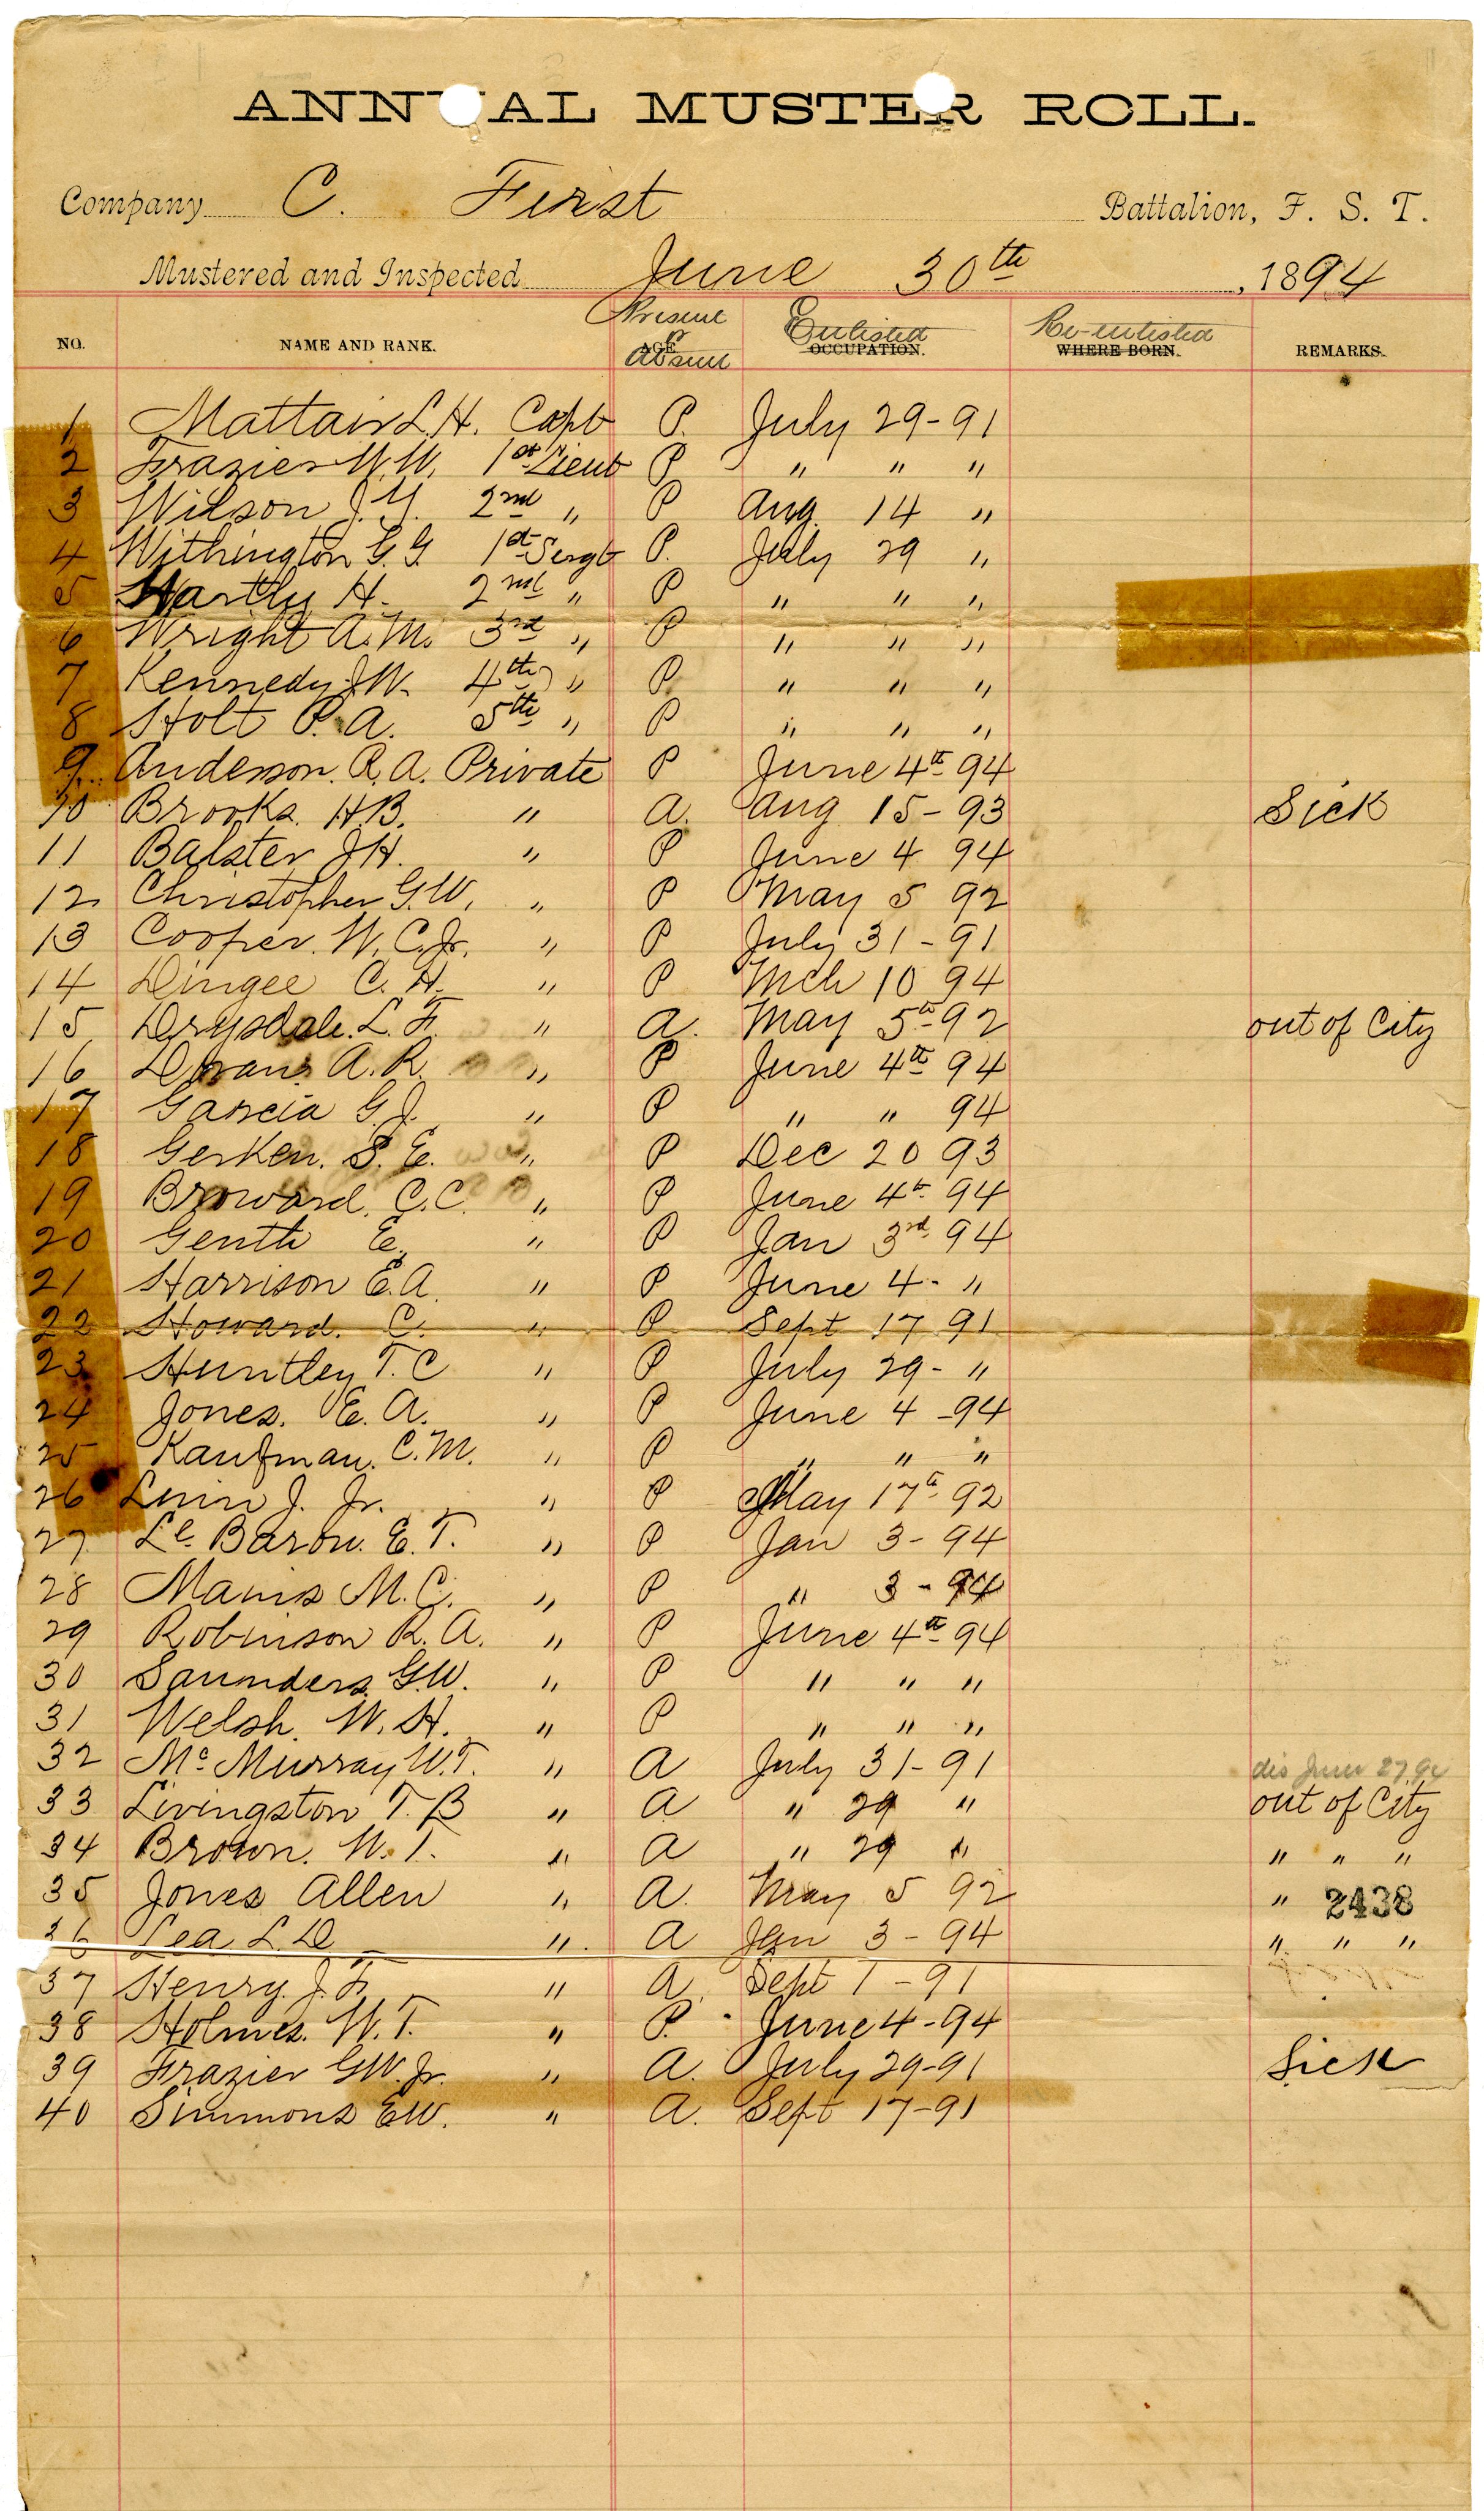 ANNUAL MUSTER ROLL.
Company C. First Battalion, F. S. T.
Mustered and Inspected June 30th, 1894
Present or Absent Enlisted Re-enlisted
NO. NAME AND RANK. AGE OCCUPATION. WHERE BORN. REMARKS.
1 Mattair L.H. Capt P. July 29-91
2 Frazier W.W. 1st Lieut P " " "
3 Wilson J.Y. 2nd " P Aug. 14 "
4 Withington G.G. 1st Sergt P. July 29 "
5 Hartly H. 2nd " P " " "
6 Wright A.M. 3rd " P " " "
7 Kennedy J.W. 4th " P " " "
8 Holt P.A. 5th " P " " "
9 Anderson. R.A. Private P June 4th 94
10 Brooks. H.B. " A. Aug 15-93 Sick
11 Balster J.H. " P June 4 94
12 Christopher G.W. " P May 5 92
13 Cooper. W.C. Jr. " P July 31-91
14 Dingee C.H. " P Mch 10 94
15 Drysdale. L.F. " A. May 5th-92 out of City
16 A.R. " P June 4th 94
17 Garcia G.J. " P " " 94
18 Gerken. S.E. " P Dec 20 93
19 Broward. C.C. " P June 4th 94
20 Genth E. " P Jan 3rd 94
21 Harrison E.A. " P June 4- "
22 Howard. C. " P Sept 17 91
23 Huntley T.C " P July 29- "
24 Jones. E.A. " P June 4-94
25 Kaufman. C.M. " P " " "
26 J. Jr. " P May 17th 92
27 Le Baron. E.T. " P Jan 3-94
28 M.C. " P " 3-94
29 Robinson R.A. " P June 4th 94
30 Saunders G.W. " P " " "
31 Welsh. W.H. " P " " "
32 McMurray W.T. " A July 31-91 dis June 27 94
33 Livingston T.B " A " 29 " out of City
34 Brown. W.T. " A " 29 " " " "
35 Jones Allen " A. May 5 92 " 2438
36 Lea L.D " A Jan 3-94 " " "
37 Henry. J.F. " A. Sept 1-91
38 Holmes. W.T. " P. June 4-94
39 Frazier G.W. Jr. " A. July 29-91 Sick
40 Simmons E.W. " A. Sept 17-91